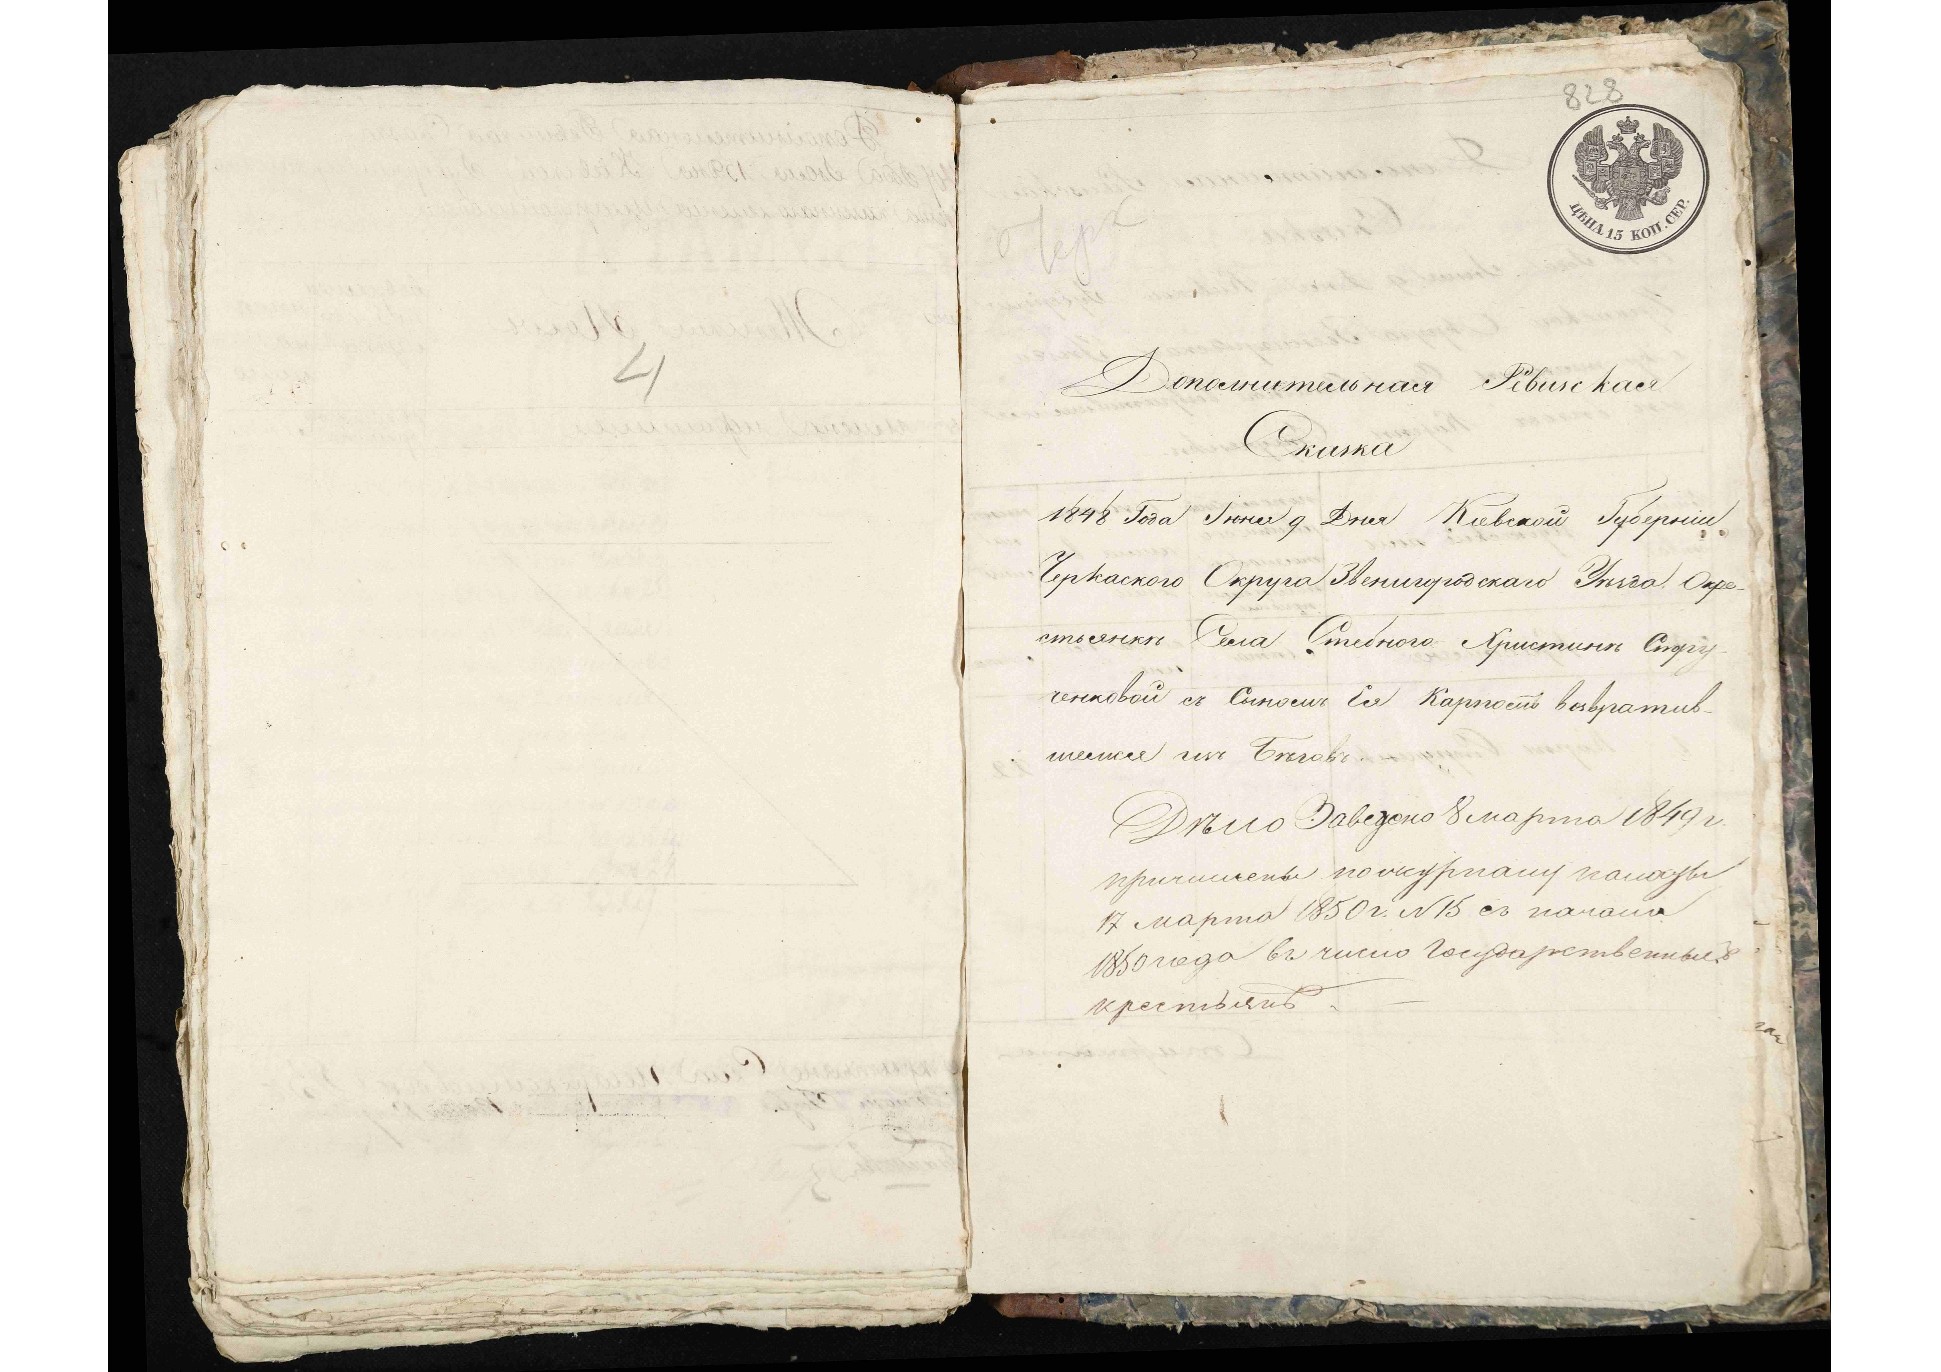 828
ЦѢНА 15 КОП. СЕР.
Черк
4
Дополнительная Ревизская
Сказка
1848 Года Іюня 9 Дня Кіевской Губерніи
Черкаского Округа Звенигородскаго Уѣзда О кре-
стьянкѣ Села Стебного Христинѣ
ченковой съ Сыномъ Ея Карпомъ возвратив-
шемся изъ Бѣговъ.
Дѣло Заведено 8 марта 1849 г.
причислены по журналу палаты
17 марта 1850 г. N 15 съ начала
1850 года въ число Государственныхъ
крестьянъ.